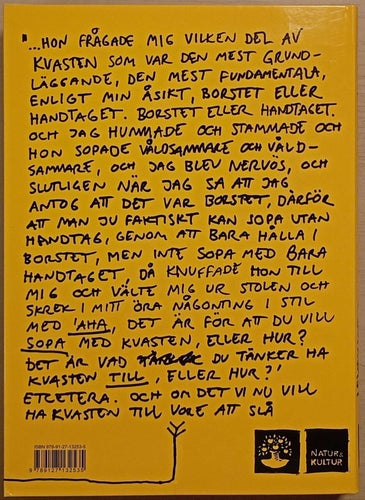 "...HON FRÅGADE MIG VILKEN DEL AV
KVASTEN SOM VAR DEN MEST GRUND-
LÄGGANDE, DEN MEST FUNDAMENTALA,
ENLIGT MIN ÅSIKT, BORSTET ELLER
HANDTAGET. BORSTET ELLER HANDTAGET.
OCH JAG HUMMADE OCH STAMMADE OCH
HON SOPADE VÅLDSAMMARE OCH VÅLD-
SAMMARE, OCH JAG BLEV NERVÖS, OCH
SLUTLIGEN NÄR JAG SA ATT JAG
ANTOG ATT DET VAR BORSTET, DÄRFÖR
ATT MAN JU FAKTISKT KAN SOPA UTAN
HANDTAG, GENOM ATT BARA HÅLLA I
BORSTET, MEN INTE SOPA MED BARA
HANDTAGET, DÅ KNUFFADE HON TILL
MIG OCH VÄLTE MIG UR STOLEN OCH
SKREK I MITT ÖRA NÅGONTING I STIL
MED 'AHA, DET ÄR FÖR ATT DU VILL
SOPA MED KVASTEN, ELLER HUR?
DET ÄR VAD DU TÄNKER HA
KVASTEN TILL, ELLER HUR?'
ETCETERA. OCH OM DET VI NU VILL
HA KVASTEN TILL VORE ATT SLÅ
ISBN 978-91-27-13253-5
9789127132535
NATUR &
KULTUR